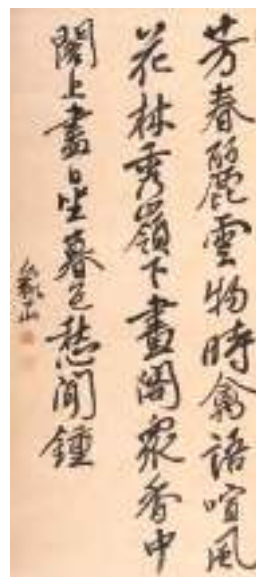 芳春麗雲物時禽語喧風
花林秀嶺下畫閣衆香中
閣上盡日坐暮色愁聞鍾